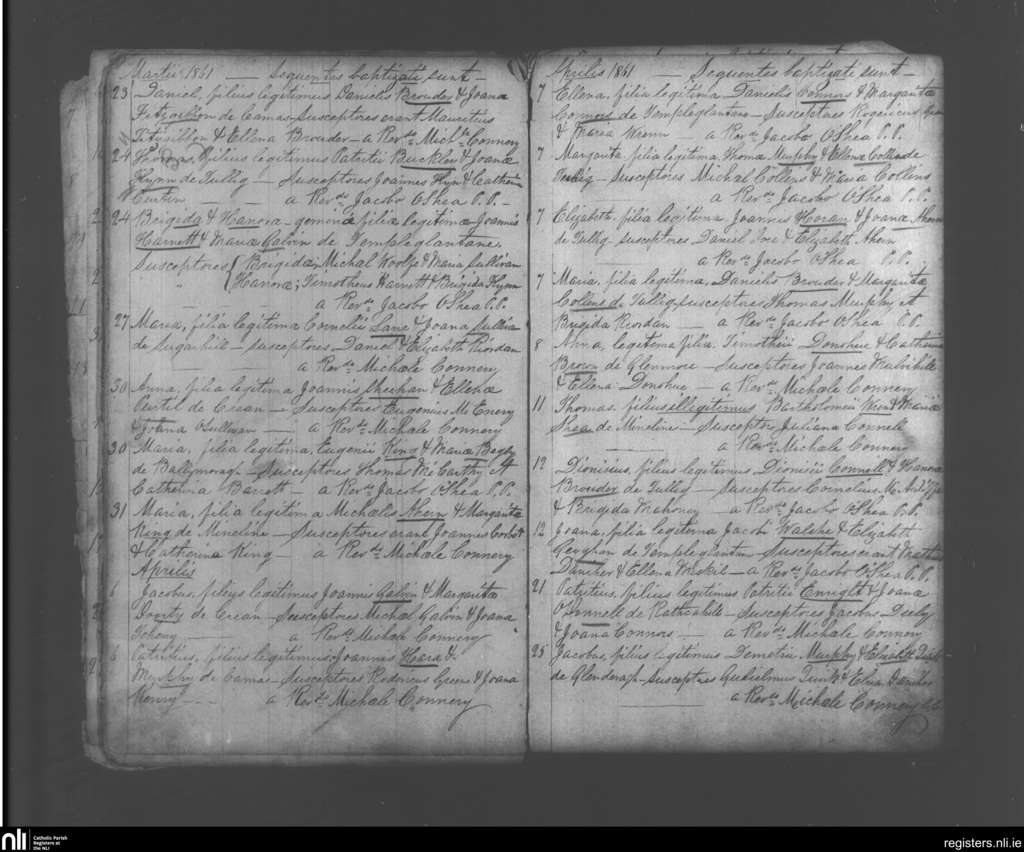 Martii 1861 — Sequentes baptizati sunt —
23 Daniel, filius legitimus Danielis Brouder & Joana
Fitzgibbon de Camas. Susceptores erant Mauritius
Fitzgibbon & Ellena Brouder — a Revdo Michle Connery
24 Thomas, filius legitimus Patritii Buckley & Joanæ
Flynn de Tullig — Susceptores Joannes Flyn & Catherina
Curtin — a Revdo Jacobo OShea P.P. —
24 Brigida & Hanora — gemina filia legitima Joannis
Harnett & Maria Galvin de Templeglantane.
Susceptores { Brigida; Michal Woolfe & Maria Sullivan
" { Hanora; Timotheus Harnett & Brigida Flynn
a Revdo Jacobo OShea P.P.
27 Maria, filia legitima Cornelii Lane & Joana Sullivan
de Sugarhill — susceptores — Daniel & Elizabeth Riordan
a Revdo Michale Connery
30 Anna, filia legitima Joannis Sheehan & Ellena
Curtil de Crean — Susceptores Eugenius McEnery
& Joana OSullivan — a Revdo Michale Connery
30 Maria, filia legitima, Eugenii King & Maria Begly
de Ballymorragh — Susceptores Thomas McCarthy et
Catherina Barrett — a Revdo Jacobo OShea P.P.
31 Maria, filia legitima Michælis Ahern & Margarita
King de Mineline — Susceptores erant Joannes Corbet
& Catherina King — a Revdo Michale Connery
Aprilis
6 Jacobus, filius legitimus Joannis Galvin & Margarita
Doody de Crean — Susceptores Michal Galvin & Joana
a Revdo Michale Connery
6 Patritius, filius legitimus Joannis Hara &
Murphy de Camas — Susceptores Rodericus Greene & Joana
Henry — a Revdo Michale Connery
Aprilis 1861 — Sequentes baptizati sunt —
7 Ellena, filia legitima Danielis Connors & Margarita
Connors de Templeglantane — Susceptores Rogericus
& Maria Wrenn — a Revdo Jacobo OShea P.P.
7 Margarita filia legitima Thoma Murphy & Ellena Collens de
Tullig — Susceptores Michal Collens & Maria Collens
a Revdo Jacobo OShea P.P.
7 Elizabeth, filia legitima Joannis Horan & Joana Ahern
de Tullig — susceptores Daniel & Elizabeth Ahern
a Revdo Jacobo OShea P.P.
7 Maria, filia legitima, Danielis Brouder & Margarita
Collens de Tullig, susceptores Thomas Murphy et
Brigida Riordan — a Revdo Jacobo OShea P.P.
8 Anna, legitima filia Timothii Donohue & Catherina
Brown de Glenmore — Susceptores Joannes Mulvihill
& Ellena Donohue — a Revdo Michale Connery
11 Thomas, filius illigitimus Bartholomeii & Maria
Shea de Mineline — Susceptor Juliana Connell
a Revdo Michale Connery
12 Dionisius, filius legitimus Dionisii Connell & Hanora
Brouder de Tullig — Susceptores Cornelius McAuliffe
& Brigida Mahoney — a Revdo Jacobo OShea P.P.
12 Joana, filia legitima Jacobi Walshe & Elizabeth
Geoghan de Templeglantin — Susceptores erant
Danaher & Ellena — a Revdo Jacobo OShea P.P.
21 Patritius, filius legitimus Patritii Enright & Joana
OConnell de Rathcahill — Susceptores Jacobus
& Joana Connors — a Revdo Michale Connery
25 Jacobus, filius legitimus Murphy & Elizabeth
de Glenderagh — Susceptores Gulielmus Quirk & Eliza Danaher
a Revdo Michale Connery
nli
Catholic Parish
Registers at
the NLI
registers.nli.ie